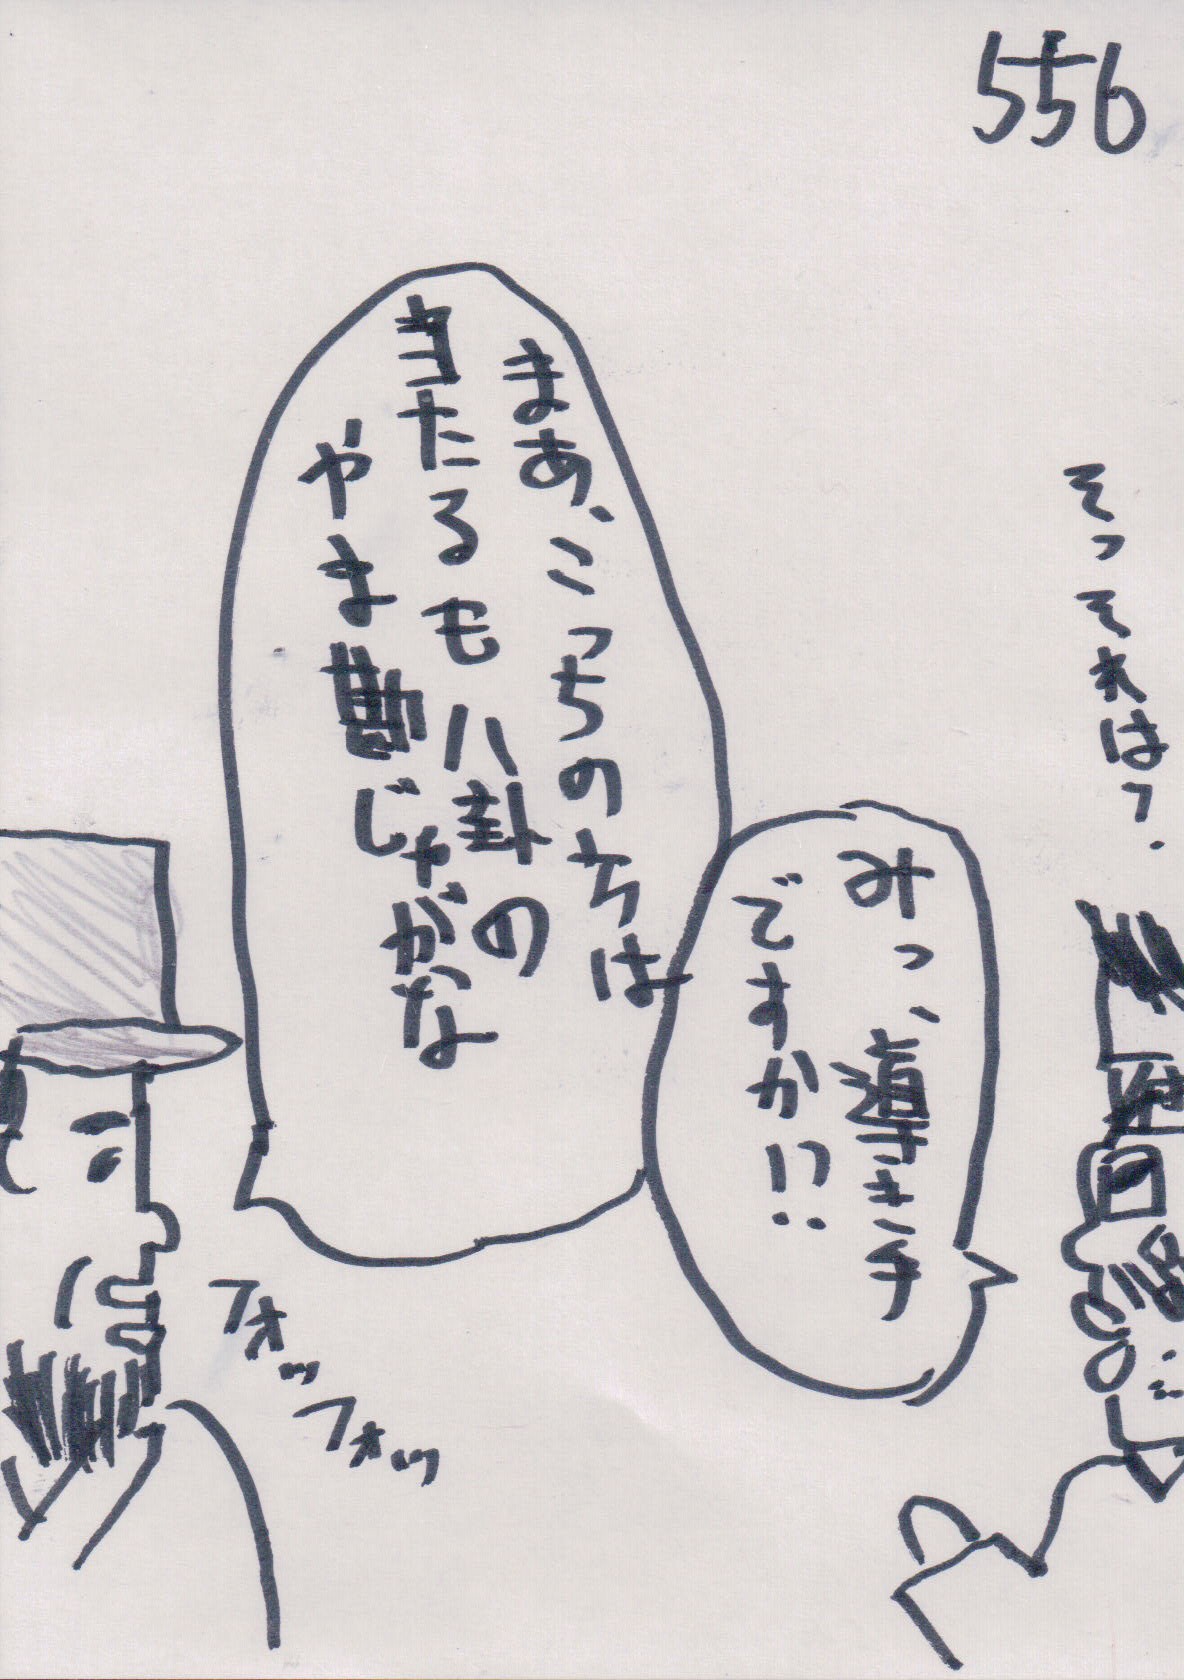 556
そっそれは？.
みっ、導き手
ですか！？
まあ、こっちのちは
きたるも八卦の
やま勘じゃがな
フォッ
フォッ